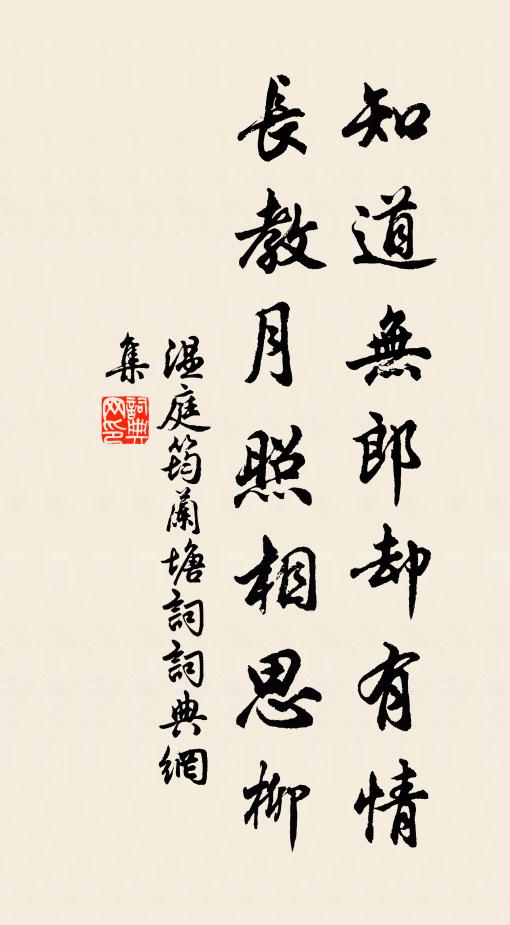 知道無郎却有情
長教月照相思柳
温庭筠蘭塘詞詞典網
集
詞典
网印